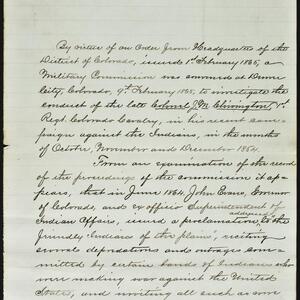 By virtue of an Order from Headquarters of the
District of Colorado, issued 1st February 1865, a
Military Commission was convened at Denver
City, 9th February 1865, to investigate the
conduct of the late Colonel J.M. Chivington, 1st
Regt. Colorado Cavalry, in his recent cam-
paign against the Indians, in the months
of October, November and December 1864.
From an examination of the record
of the proceedings of the commission it ap-
pears, that in June 1864, John Evans, Governor
of Colorado, and ex officio Superintendent of
Indian Affairs, issued a proclamation addressed "to the
friendly Indians of the plains", reciting
several depredations and outrages com-
mitted by certain bands of Indians who
were making war against the United
States, and inviting all such as were